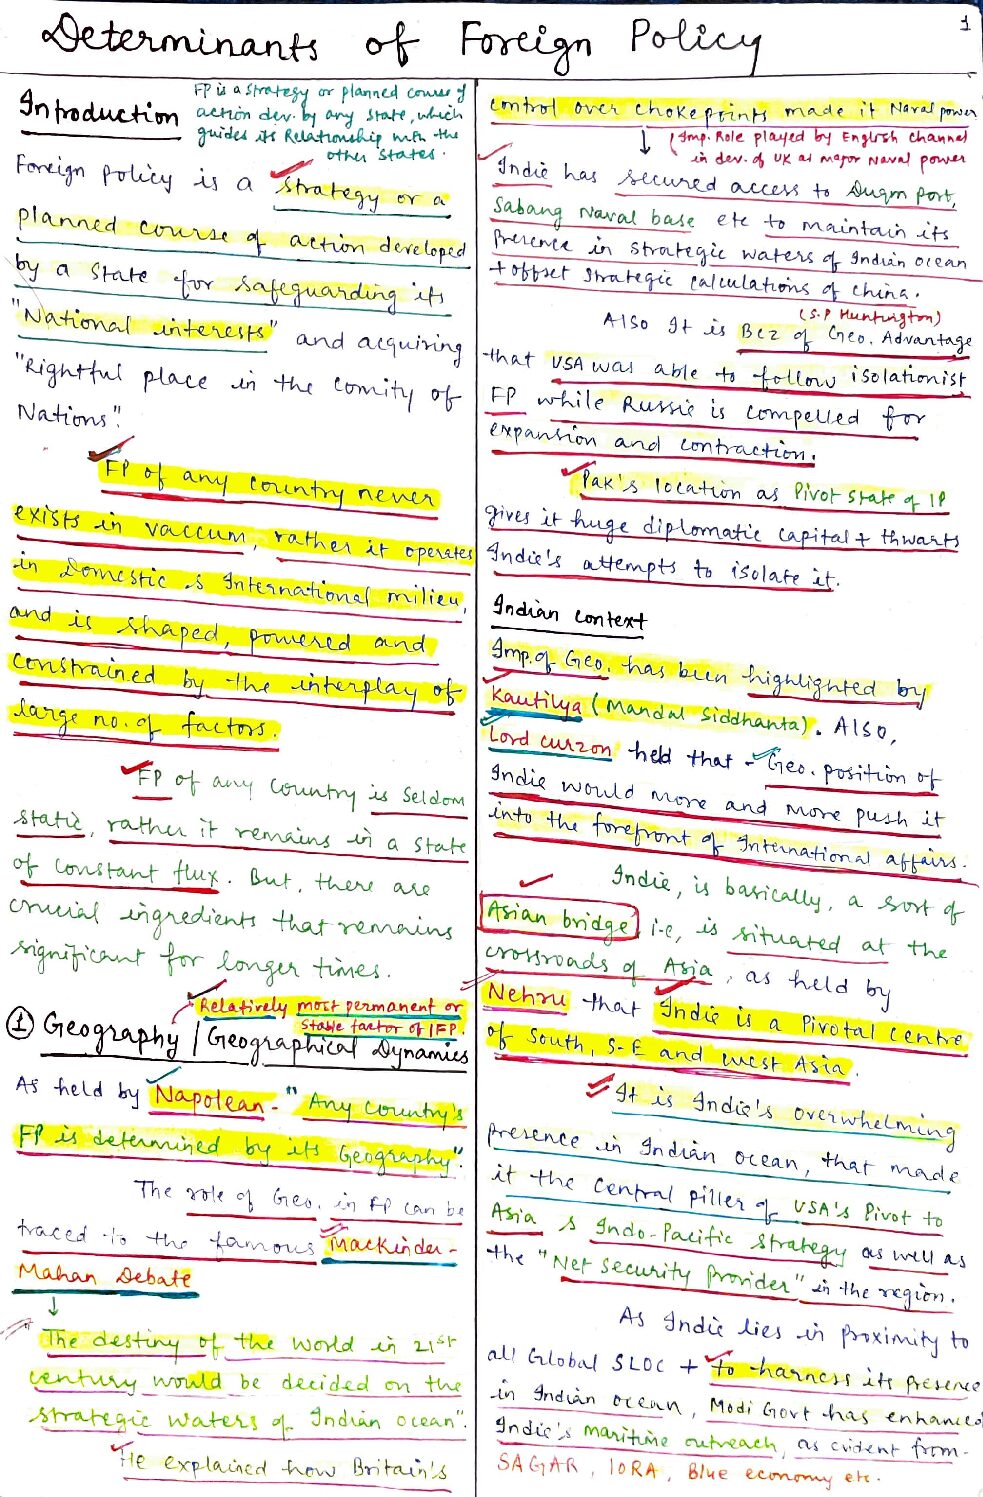 1
Determinants of Foreign Policy
Introduction
FP is a strategy or planned course of
action dev. by any state, which
guides its Relationship with the
other states.
Foreign Policy is a strategy or a
planned course of action developed
by a state for safeguarding its
"National interests" and acquiring
"Rightful place in the Comity of
Nations".
FP of any country never
exists in vaccum, rather it operates
in Domestic & International milieu,
and is shaped, powered and
constrained by the interplay of
large no. of factors.
FP of any country is seldom
static, rather it remains in a state
of constant flux. But, there are
crucial ingredients that remains
significant for longer times.
Relatively most permanent or
stable factor of IFP.
① Geography / Geographical Dynamics
As held by Napolean - "Any country's
FP is determined by its Geography".
The role of Geo. in FP can be
traced to the famous Mackinder-
Mahan Debate
↓
"The destiny of the world in 21st
century would be decided on the
strategic waters of Indian ocean".
He explained how Britain's
control over chokepoints made it Naval power
↓ (Imp. Role played by English Channel
in dev. of UK as major Naval power
Indie has secured access to Duqm Port,
Sabang Naval base etc to maintain its
Presence in strategic waters of Indian ocean
+ offset strategic calculations of China.
(S.P Huntington)
Also It is Bcz of Geo. Advantage
that USA was able to follow isolationist
FP while Russie is compelled for
expansion and contraction.
Pak's location as Pivot state of IP
gives it huge diplomatic capital + thwarts
Indie's attempts to isolate it.
Indian context
Imp. of Geo. has been highlighted by
Kautilya (Mandal Siddhanta). Also,
Lord Curzon held that - Geo. position of
Indie would more and more push it
into the forefront of International affairs.
Indie, is basically, a sort of
Asian bridge i.e, is situated at the
crossroads of Asia, as held by
Nehru that Indie is a Pivotal centre
of South, S-E and West Asia.
It is Indie's overwhelming
presence in Indian ocean, that made
it the central piller of USA's Pivot to
Asia & Indo-Pacific strategy as well as
the "Net security Provider" in the region.
As Indie lies in Proximity to
all Global SLOC + to harness its presence
in Indian ocean, Modi Govt has enhanced
Indie's maritime outreach, as evident from-
SAGAR, IORA, Blue economy etc.